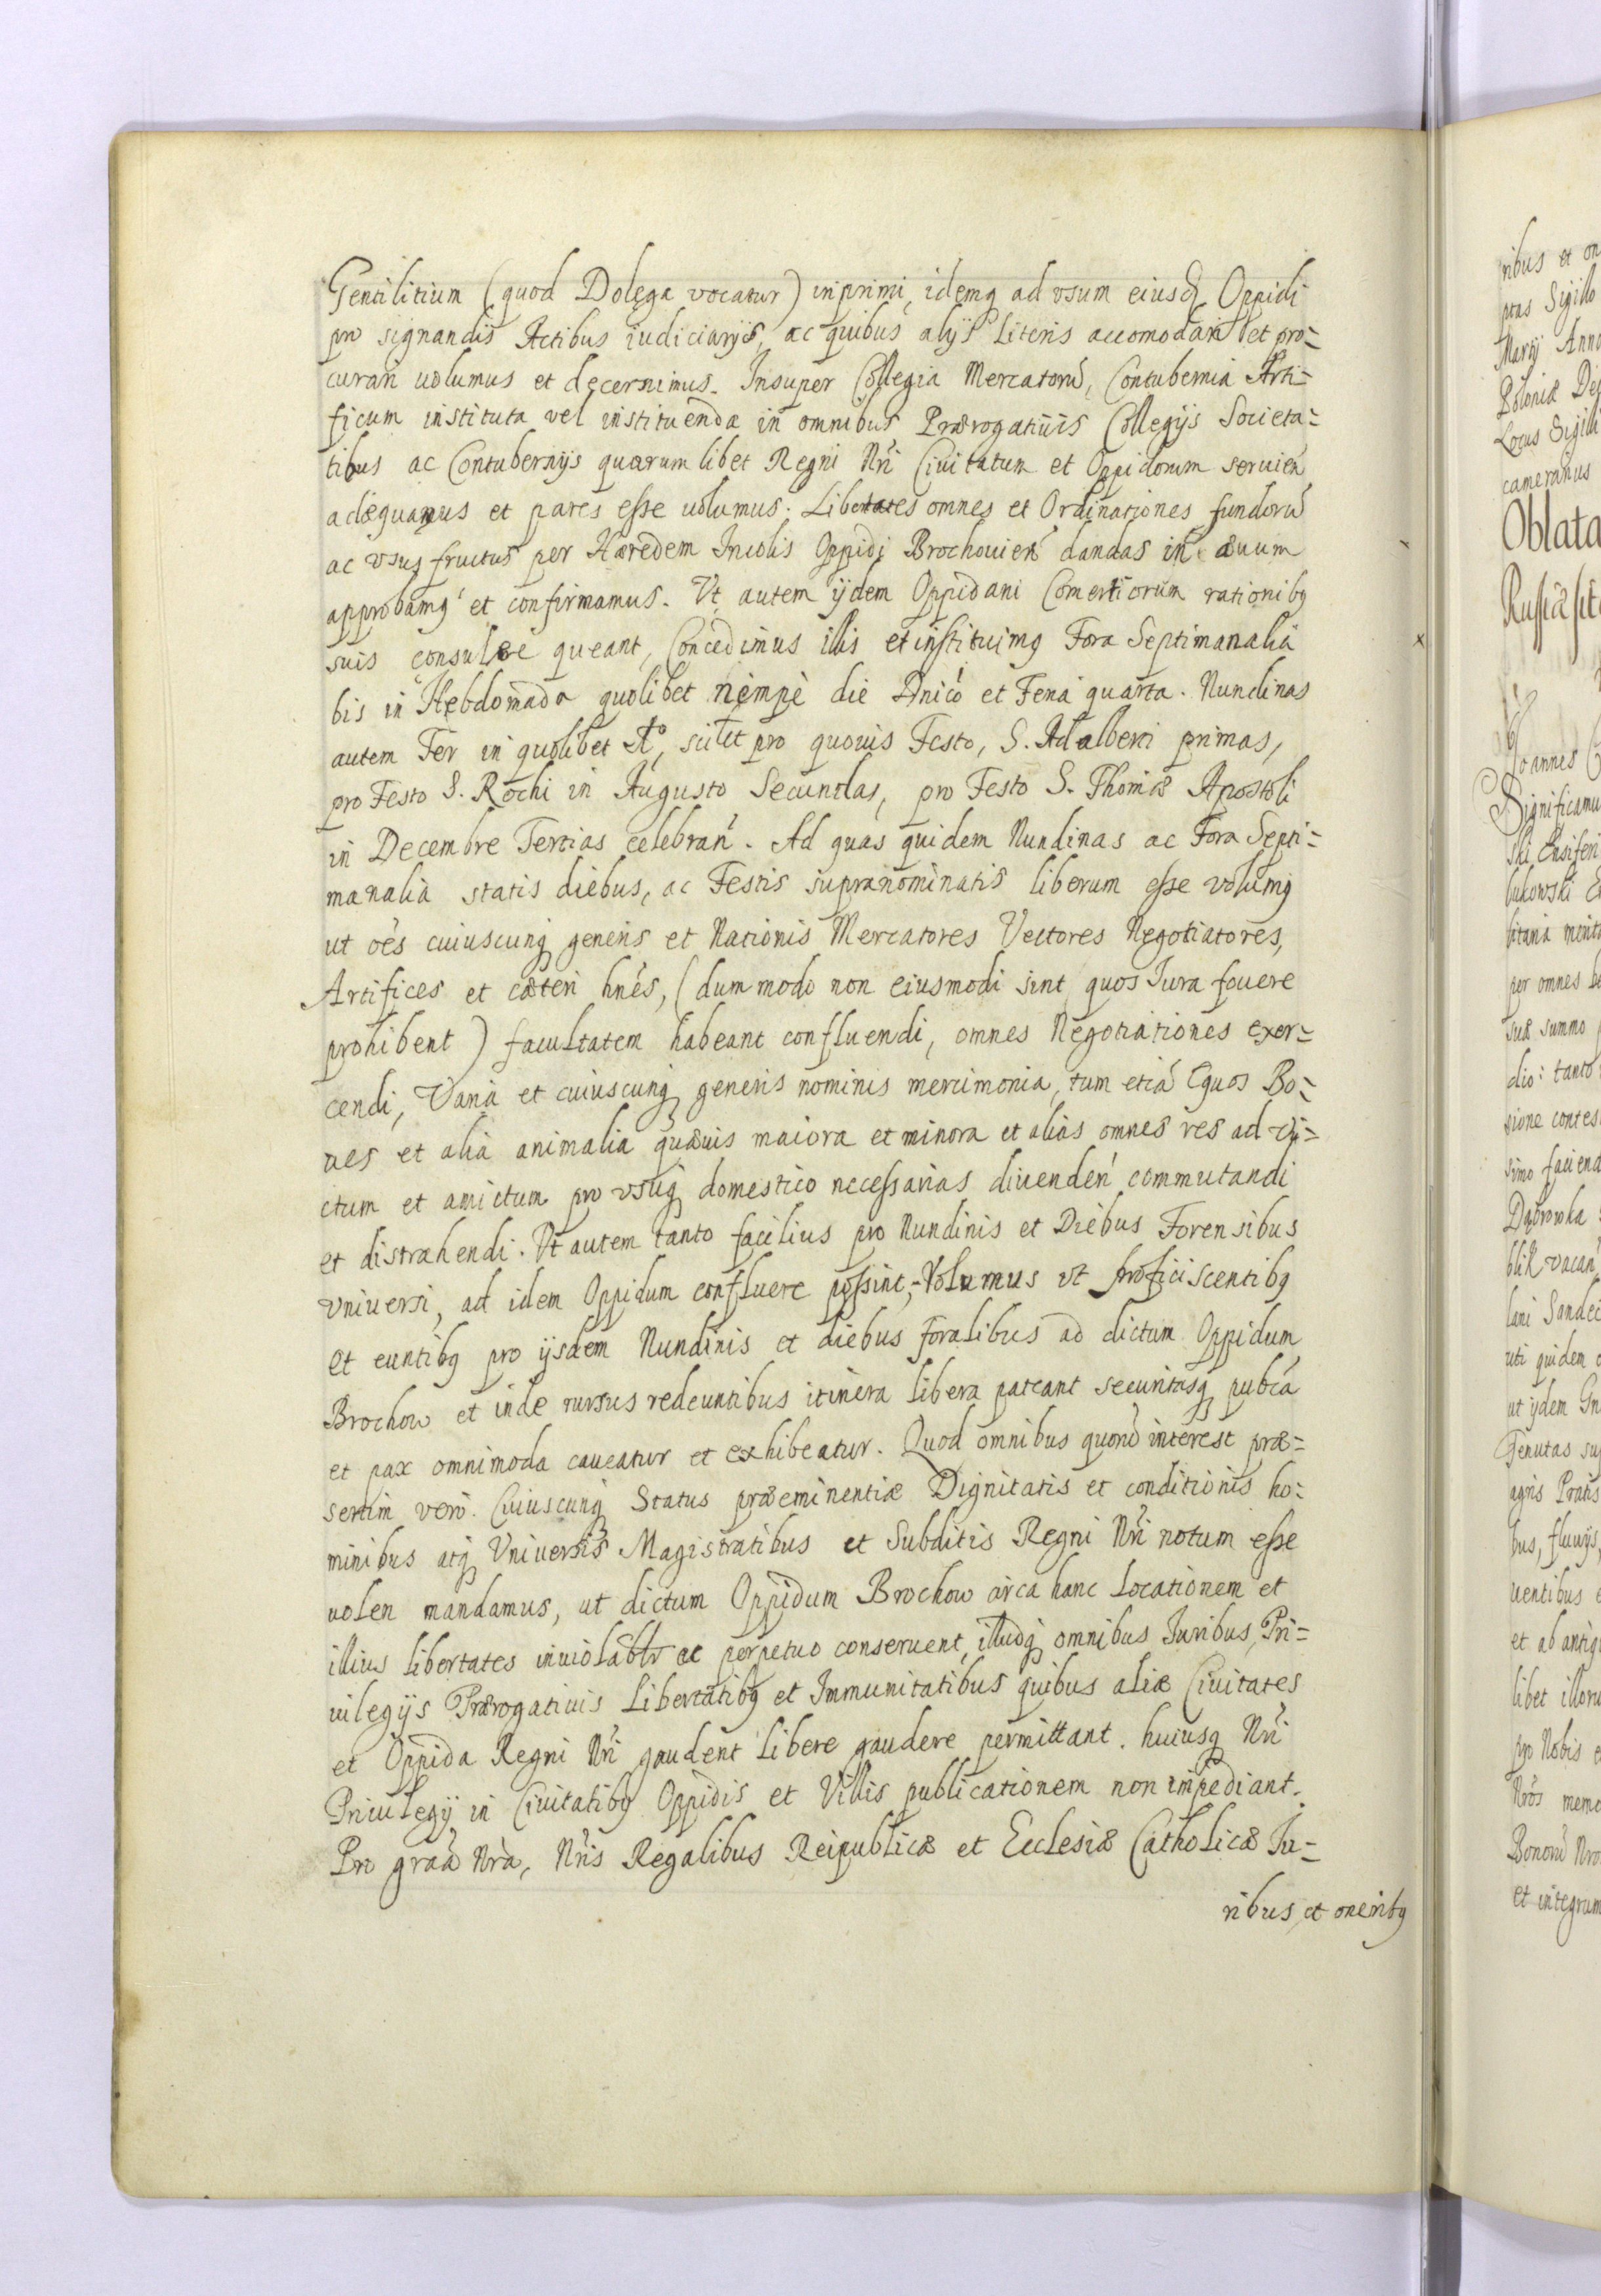 Gentilitium (quod Dolęga vocatur) inprimi, idemq ad vsum eiusd Oppidi
pro signandis Actibus iudiciarijs, ac quibus alijs Literis accomodari et pro=
curari uolumus et decernimus. Insuper Collegia Mercatorũ, Contubernia Arti=
ficum instituta vel instituenda in omnibus Prærogatiuis Collegijs Societa=
tibus ac Contubernijs quarumlibet Regni Nri Ciuitatum et Oppidorum seruień
adæquamus et pares esse uolumus. Libertates omnes et Ordinationes fundorũ
ac vsus fructus per Hæredem Incolis Oppidi Brochouień dandas in æuum
approbamq et confirmamus. Vt autem ijdem Oppidani Comertiorum rationibq
suis consulere queant, Concedimus illis et instituimq Fora Septimanalia
bis in Hebdomada quolibet nempè die Dnico et Feria quarta. Nundinas
autem Ter in quolibet Ao, scilet pro quouis Festo, S. Adalberi primas,
pro Festo S. Rochi in Augusto Secundas, pro Festo S. Thomæ Apostoli
in Decembre Tertias celebrań. Ad quas quidem Nundinas ac Fora Septi=
manalia statis diebus, ac Festis supranominatis liberum esse volumq
ut oẽs cuiuscunq generis et Nationis Mercatores Vectores Negotiatores,
Artifices et cæteri hnẽs, (dummodo non eiusmodi sint quos Iura fouere
prohibent) facultatem habeant confluendi, omnes Negotiationes exer=
cendi, Varia et cuiuscunq generis nominis mercimonia, tum etiã Equos Bo=
ues et alia animalia quæuis maiora et minora et alias omnes res ad vi=
ctum et amictum pro vsuq domestico necessarias diuendeń commutandi
et distrahendi. Vt autem tanto facilius pro Nundinis et Diebus Forensibus
vniuersi, ad idem Oppidum confluere possint, Volumus vt proficiscentibq
et euntibq pro ijsdem Nundinis et diebus foralibus ad dictum Oppidum
Brochow et inde rursus redeuntibus itinera libera pateant securitasq pubca
et pax omnimoda caueatur et exhibeatur. Quod omnibus quorũ interest præ=
sertim verò. Cuiuscunq Status præeminentiæ Dignitatis et conditionis ho=
minibus atq Vniuersis Magistratibus et Subditis Regni Nri notum esse
uolen mandamus, ut dictum Oppidum Brochow circa hanc Locationem et
illius libertates inuiolabtr ac perpetuo conseruent, illudq omnibus Iuribus, Pri=
uilegijs Prærogatiuis Libertatibq et Immunitatibus quibus aliæ Ciuitates
et Oppida Regni Nri gaudent libere gaudere permittant. huiusq Nri
Priuilegij in Ciuitatibq Oppidis et Villis publicationem non impediant.
Pro graã Nrã, Nris Regalibus Reipublicæ et Ecclesiæ Catholicæ Iu=
ribus et oneribq
ribus et on
ptas Sigillo
Martij Anno
Poloniæ
Locus Sigilli
cameranus
Oblata
Joannes
Significamu
Ensiferi
per omnes
suæ summo
dio: tanto
sione contes
simo faciena
Dąbrowka
vacan
lani Sandec
uti quidem
ut ijdem Gn
Tenutas
agris Pratis
bus, fluuijs,
uentibus
et ab antiq
libet illoru
pro Nobis
Nros memo
Bonorũ Nro
et integrum